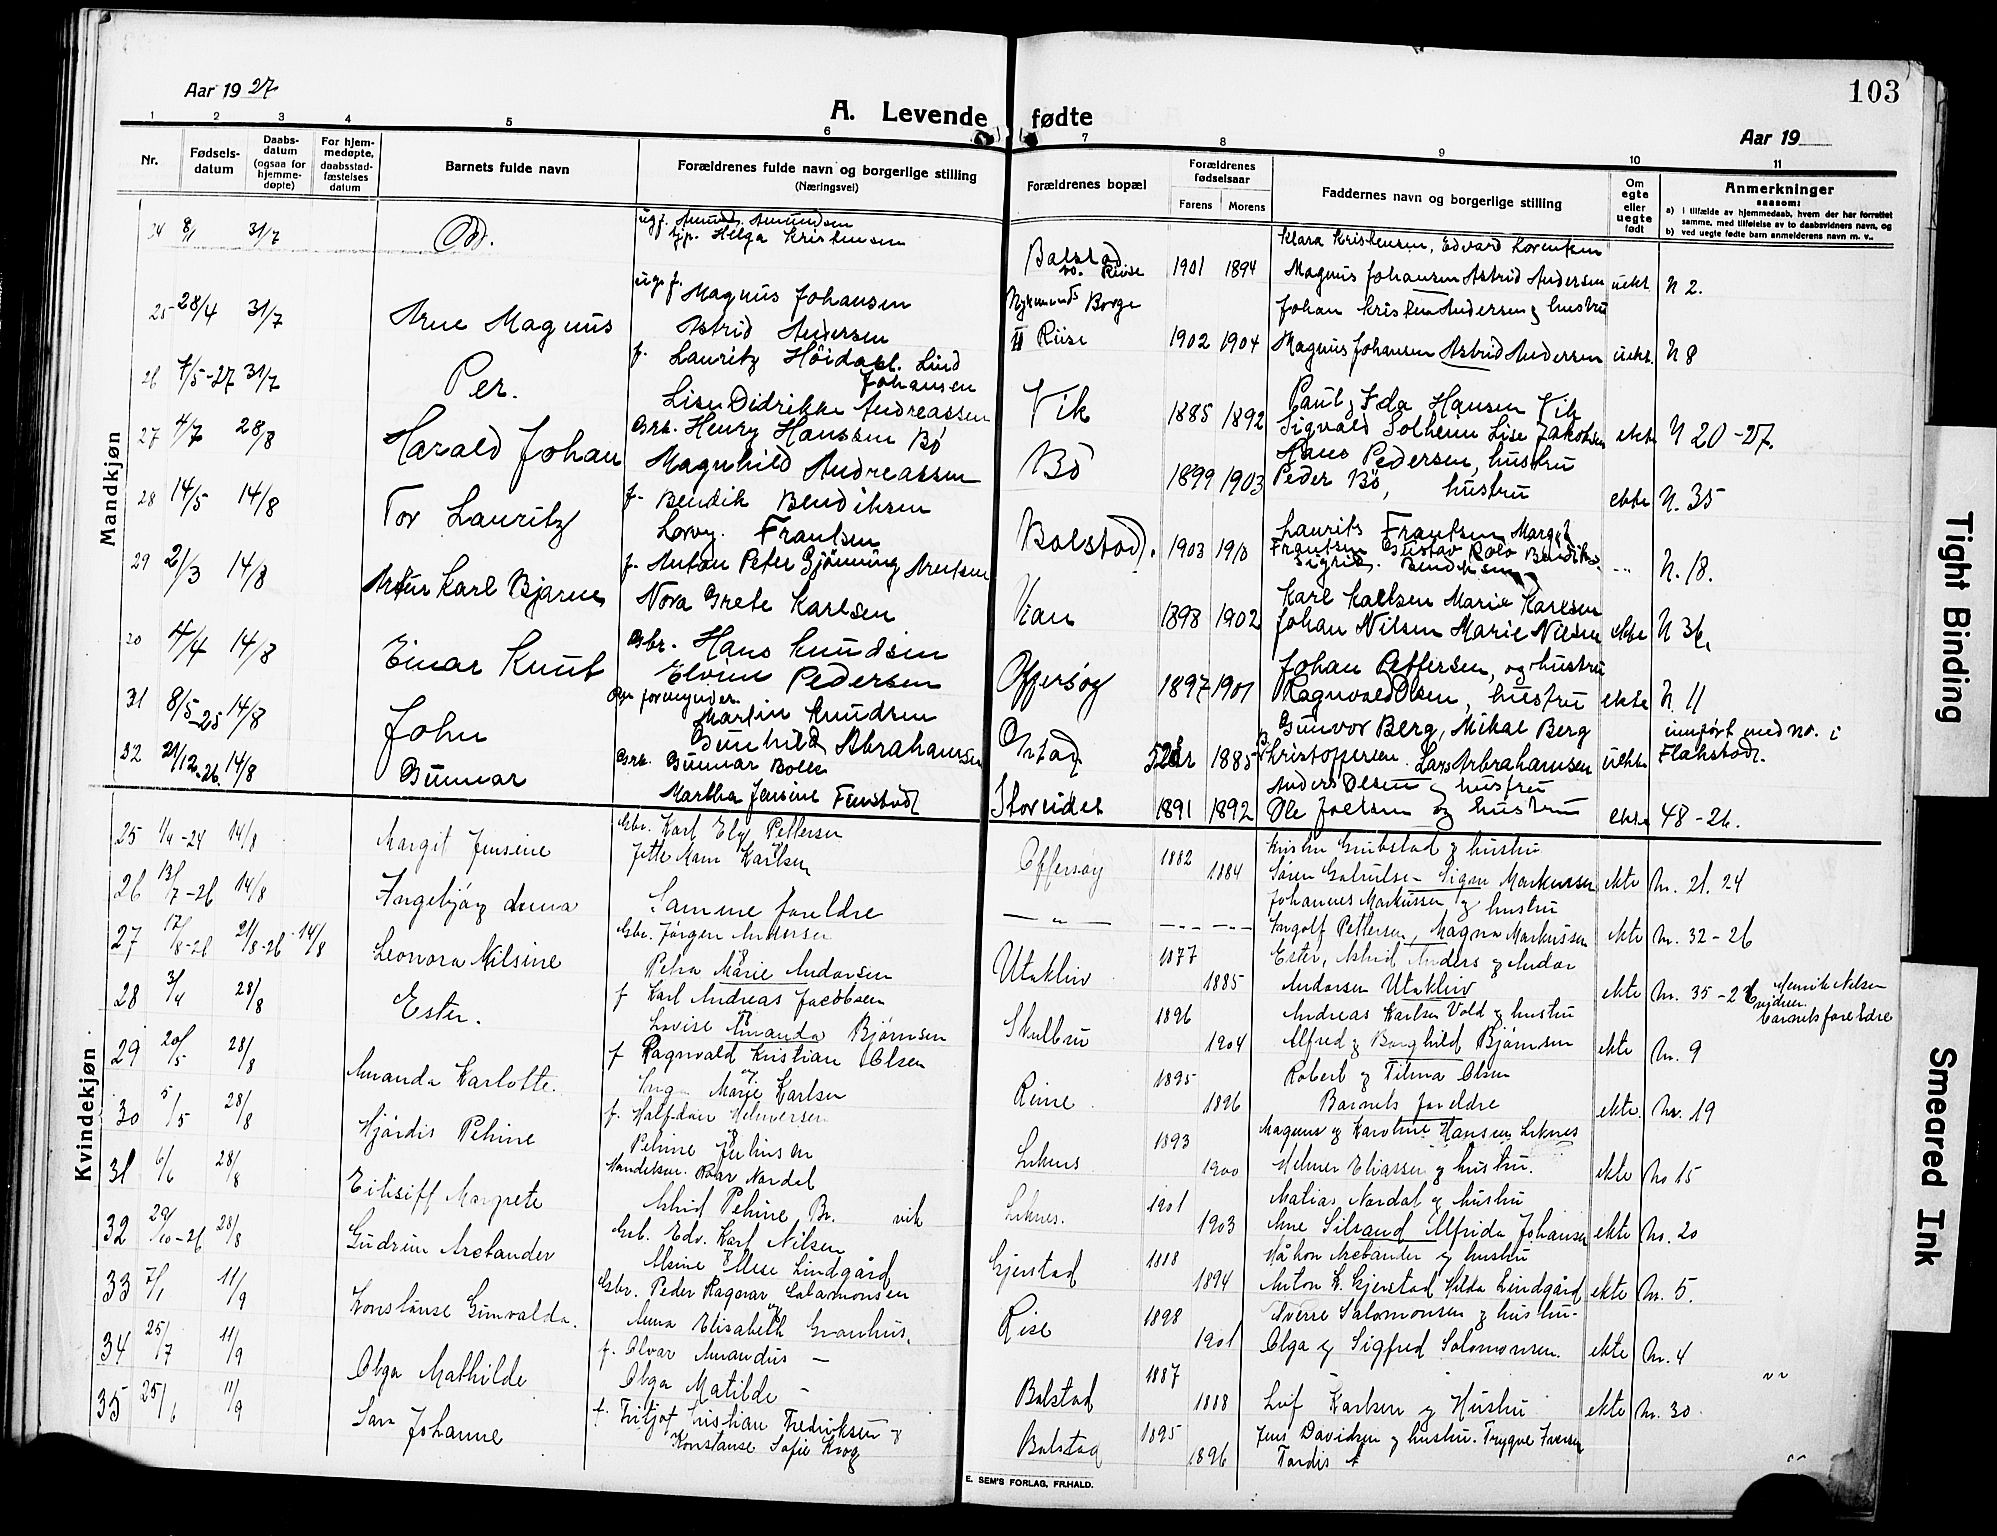 Aar 19 27
A. Levende fødte
103
Aar 19
1 2 3 4 5 6 7 8 9 10 11
Nr.
Fødsels-
datum
Daabs-
datum
(ogsaa for
hjemme-
døpte)
For hjem-
medøpte,
daabsstad-
fæstelses
datum
Barnets fulde navn
Forældrenes fulde navn og borgerlige stilling
(Næringsvei)
Forældrenes bopæl
Forældrenes
fødselsaar
Farens Morens
Faddernes navn og borgerlige stilling
Om
egte
eller
uegte
født
Anmerkninger
saasom:
a) i tilfælde av hjemmedaab, hvem der har forrettet
samme, med tilføielse av to daabsvidners navn, og
b) ved uegte fødte barn anmelderens navn m. v..
Mandkjøn
24 8/1 31/7 Odd.
Helga Kristensen
Balstad 1901 1894
Klara Kristensen, Edvard Lorentsen
Magnus Johansen Astrid Andersen uekt. N 2.
25 28/4 31/7 Arne Magnus
ug. f. Magnus Johansen
Astrid Andersen
Borge
Riise 1902 1904
Johan Kristen Andersen og hustru
Magnus Johansen Astrid Andersen uekt. N 8
26 7/5-27 31/7 Per.
f. Lauritz Höidahl. Lind
Johansen
Lise Didrikke Andreassen
Vik 1885 1892
Paul, Ida Hansen Vik
Sigvald Solheim Lise Jakobsen ekte N 20-27.
27 4/7 28/8 Harald Johan
Gbr. Henry Hanssen Bö
Magnhild Andreassen
Bö 1899 1903
Hans Pedersen, hustru
Peder Bö, hustru ekte N. 35
28 14/5 14/8 Tor Lauritz
f. Bendik Bendiksen
Lovy. Frantsen
Balstad. 1903 1910
Laurits Frantsen Margit
Frantsen Gustav Rolo Bendiks.
Sigrid. Bendiksen N. 18.
29 21/3 14/8 Artur Karl Bjarne
f. Anton Peter Gjönning Arntsen
Nora Grete Karlsen
Vian 1898 1902
Karl Karlsen Marie Karlsen
Johan Nilsen Marie Nilsen ekte N 36,
20 4/4 14/8 Einar Knut
Gbr. Hans Knudsen
Elvine Pedersen
Offersøy 1897 1901
Johan Pettersen, og hustru
Ragnvald Olsen, hustru ekte N. 11
31 8/5-25 14/8 John
Martin Knudsen
Gunhild Abrahamsen
52 år 1885
Gunvor Berg, Mikal Berg
Kristoffersen Lars Abrahamsen uekte
innført med no. i
Flakstad.
32 21/12-26. 14/8 Gunnar
Gbr. Gunnar Bolle
Martha Jensine Finstad
Storeidet 1891 1892
Anders Olsen og hustru
Ole Joelsen og hustru ekte 48-26.
Kvindekjøn
25 1/4-24 14/8 Margit Jensine
Gbr. Karl Pettersen
Karlsen
Offersøy 1882 1884
Kristen Grubstad og hustru
Søren Signe Markussen ekte Nr. 21. 24
26 13/7-26 14/8 Ingebjørg Anna
Samme foreldre
— " —
Johannes Markussen og hustru
Ingolf Pettersen, Magna Markussen ekte Nr. 32-26
27 17/8-26 21/8-26 14/8 Leonora Nilsine
Gbr. Jørgen Andersen
Petra Marie Andersen
Utakleiv 1877 1885
Ester, Astrid Anders og Andor
Andersen Utakleiv ekte Nr. 35-26
Henrik Nilsen
barnets foreldre
28 3/4 28/8 Ester.
f Karl Andreas Jacobsen
Lovise Amanda Bjørnsen
Skulbru 1896 1904
Andreas Karlsen Vold og hustru
Alfred og Borghild Bjørnsen ekte Nr. 9
29 20/5 28/8 Amanda Karlotte.
f Ragnvald Kristian Olsen
Inga Marie Karlsen
Reine 1895 1896
Robert og Tilma Olsen
Barnets foreldre ekte. Nr. 19
30 5/5 28/8 Hjørdis Petrine
f. Halfdan Helmersen
Petrine Juliussen
Leknes 1893 1900
Magnus og Karoline Hansen Leknes
Helmer Eliassen og hustru. ekte No 15
31 6/6 28/8 Margrete
Roar Nordal
Astrid Petrine Br. vik
Leknes. 1901 1903
Matias Nordal og hustru
Arne Silsand Alfrida Johansen ekte No. 20
32 29/10-26 28/8 Gudrun Arctander
Gbr. Edv. Karl Nilsen
Alvine Elise Lindgård
Gjerstad 1888 1894
Håkon Arctander og hustru
Anton K. Gjerstad Hilda Lindgård ekte Nr. 5.
33 7/1 11/9 Konstanse Gunvalda.
Gbr. Peder Ragnar Salamonsen
Anna Elisabeth Granhus.
Rise 1898 1901
Sverre Salomonsen og hustru.
Olga og Sigfred Salomonsen. ekte Nr. 4
34 25/7 11/9 Olga Mathilde
f. Olvar Amandus —
Olga Matilde -
Balstad 1887 1888
Leif Karlsen og Hustru ekte Nr. 30
35 25/6 11/9 Johanne
f. Fritjof Kristian Fredriksen og
Konstanse Sofie Krog
Balstad 1895 1896
Jens Davidsen og hustru. Trygve Iversen
Tordis
E. SEM'S FORLAG, FR.HALD.
Tight Binding
Smeared Ink